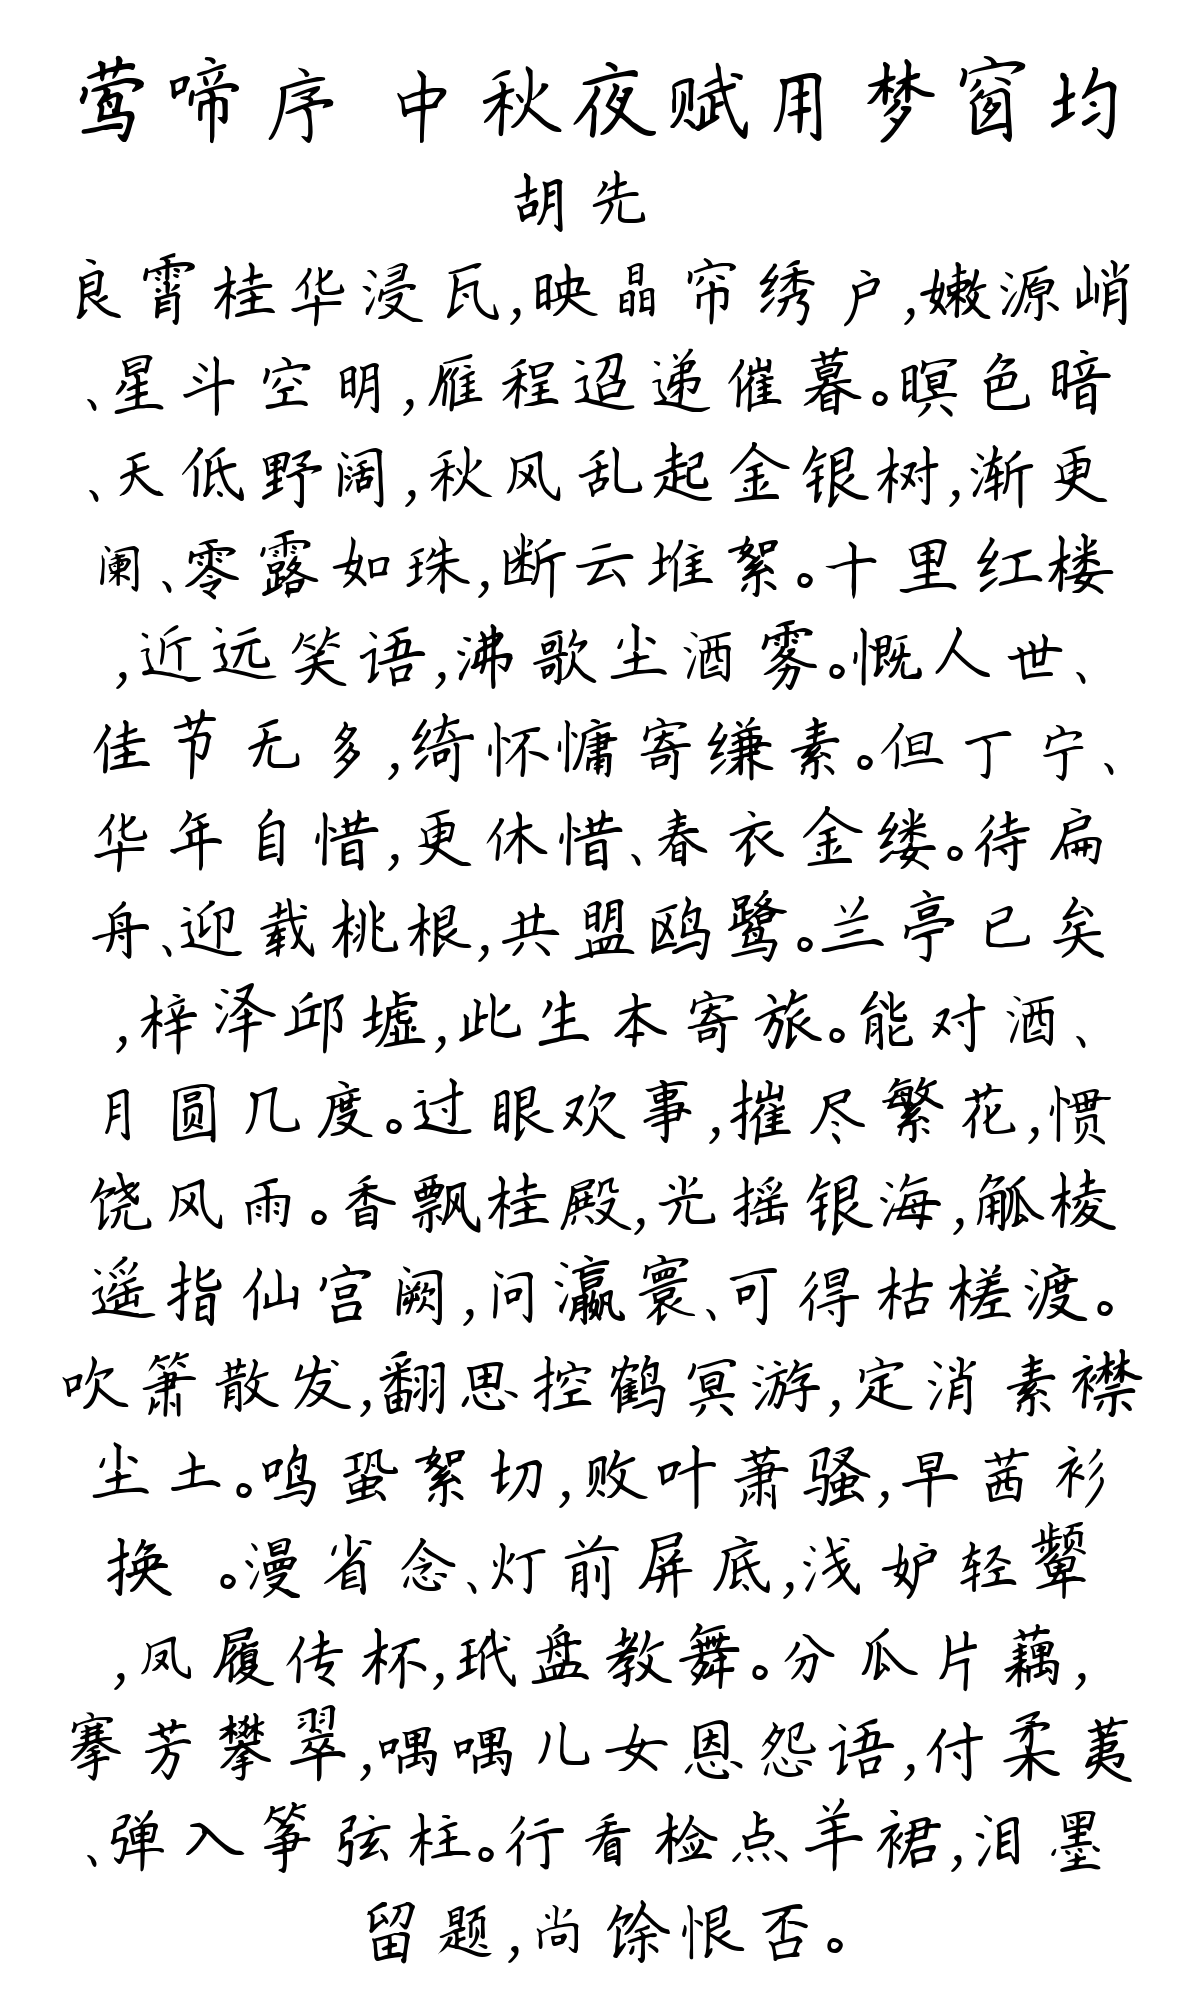 莺啼序 中秋夜赋用梦窗均
胡先
良霄桂华浸瓦,映晶帘绣户,嫩源峭
、星斗空明,雁程迢递催暮。暝色暗
、天低野阔,秋风乱起金银树,渐更
阑、零露如珠,断云堆絮。十里红楼
,近远笑语,沸歌尘酒雾。慨人世、
佳节无多,绮怀慵寄缣素。但丁宁、
华年自惜,更休惜、春衣金缕。待扁
舟、迎载桃根,共盟鸥鹭。兰亭已矣
,梓泽邱墟,此生本寄旅。能对酒、
月圆几度。过眼欢事,摧尽繁花,惯
饶风雨。香飘桂殿,光摇银海,觚棱
遥指仙宫阙,问瀛寰、可得枯槎渡。
吹箫散发,翻思控鹤冥游,定消素襟
尘土。鸣蛩絮切,败叶萧骚,早茜衫
换 。漫省念、灯前屏底,浅妒轻颦
,凤履传杯,玳盘教舞。分瓜片藕,
搴芳攀翠,喁喁儿女恩怨语,付柔荑
、弹入筝弦柱。行看检点羊裙,泪墨
留题,尚馀恨否。